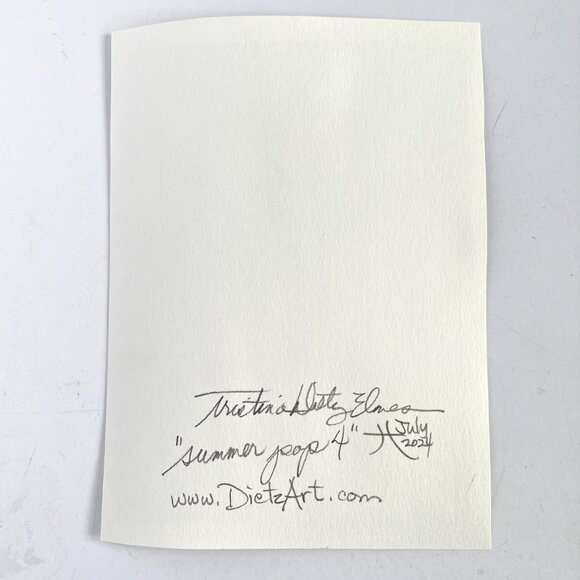 Tristina Dietz Elmes
"summer pop 4" July 2024
www.DietzArt.com